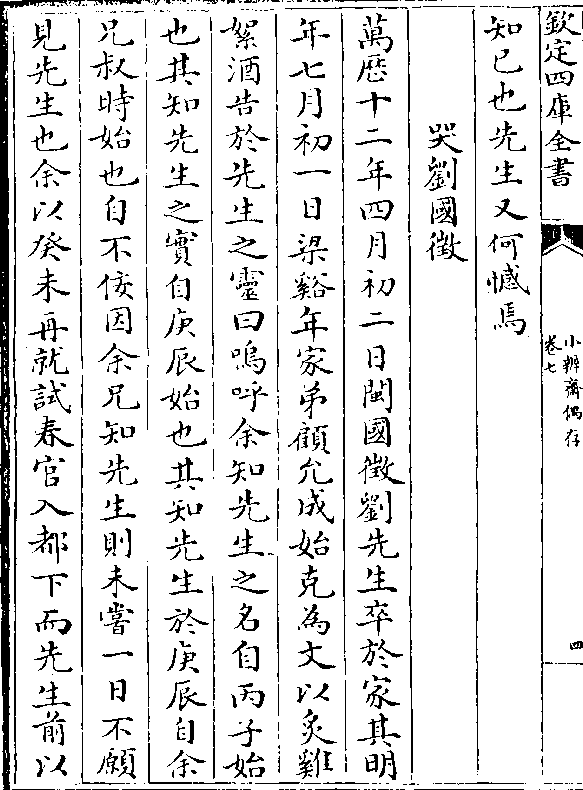 欽定四庫全書
小辨齋偶存
卷七
四
知已也先生又何憾焉
哭劉國徵
萬歷十二年四月初二日閩國徵劉先生卒於家其明
年七月初一日梁谿年家弟顧允成始克為文以炙雞
絮酒告於先生之靈曰嗚呼余知先生之名自丙子始
也其知先生之實自庚辰始也其知先生於庚辰自余
兄叔時始也自不佞因余兄知先生則未嘗一日不願
見先生也余以癸未再就試春官入都下而先生前以